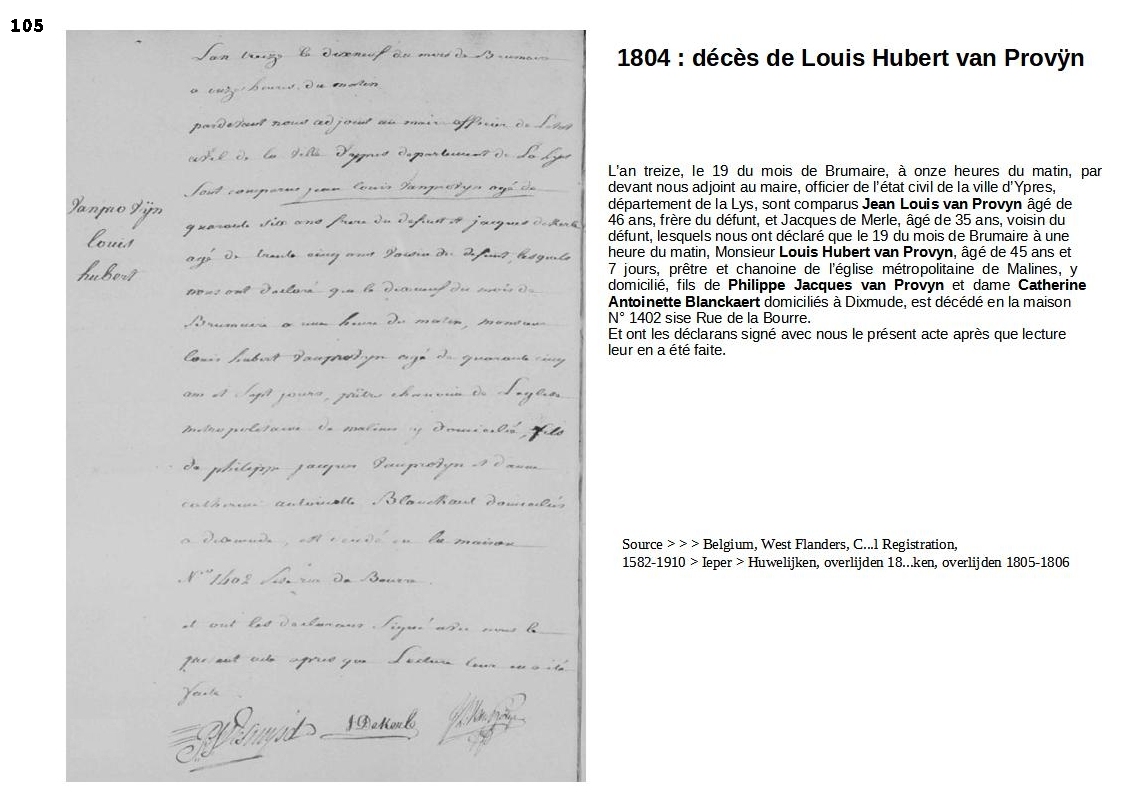 105
1804 : décès de Louis Hubert van Provÿn
L'an treize le dixneuf du mois de Brumaire
a onze heures du matin
pardevant nous adjoint au maire officier de L'etat
civil de la ville d'ypres departement de La Lys
sont comparus jean Louis Vanprovyn agé de
quarante six ans frere du defunt et jacques de Merle
agé de trente cinq ans voisin du defunt, lesquels
nous ont declaré que le dixneuf du mois de
Brumaire a une heure du matin, monsieur
Louis hubert Vanprovyn agé de quarante cinq
ans et sept jours, prêtre chanoine de L'eglise
metropolitaine de malines y domicilié, fils
de philippe jacques Vanprovyn et dame
catherine antoinette Blanckaert domiciliés
a dixmude, est decedé en la maison
N° 1402 sise rue de Bourre
et ont les declarans signé avec nous le
present acte apres que Lecture leur en a été
faite
Vanprovÿn
louis
hubert
J DeMerle
L'an treize, le 19 du mois de Brumaire, à onze heures du matin, par
devant nous adjoint au maire, officier de l'état civil de la ville d'Ypres,
département de la Lys, sont comparus Jean Louis van Provyn âgé de
46 ans, frère du défunt, et Jacques de Merle, âgé de 35 ans, voisin du
défunt, lesquels nous ont déclaré que le 19 du mois de Brumaire à une
heure du matin, Monsieur Louis Hubert van Provyn, âgé de 45 ans et
7 jours, prêtre et chanoine de l'église métropolitaine de Malines, y
domicilié, fils de Philippe Jacques van Provyn et dame Catherine
Antoinette Blanckaert domiciliés à Dixmude, est décédé en la maison
N° 1402 sise Rue de la Bourre.
Et ont les déclarans signé avec nous le présent acte après que lecture
leur en a été faite.
Source > > > Belgium, West Flanders, C...l Registration,
1582-1910 > Ieper > Huwelijken, overlijden 18...ken, overlijden 1805-1806